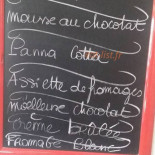 mousse au chocolat
Panna cotta
Assiette de fromages
moelleux chocolat
crème brulée
FROMAGE Blanc